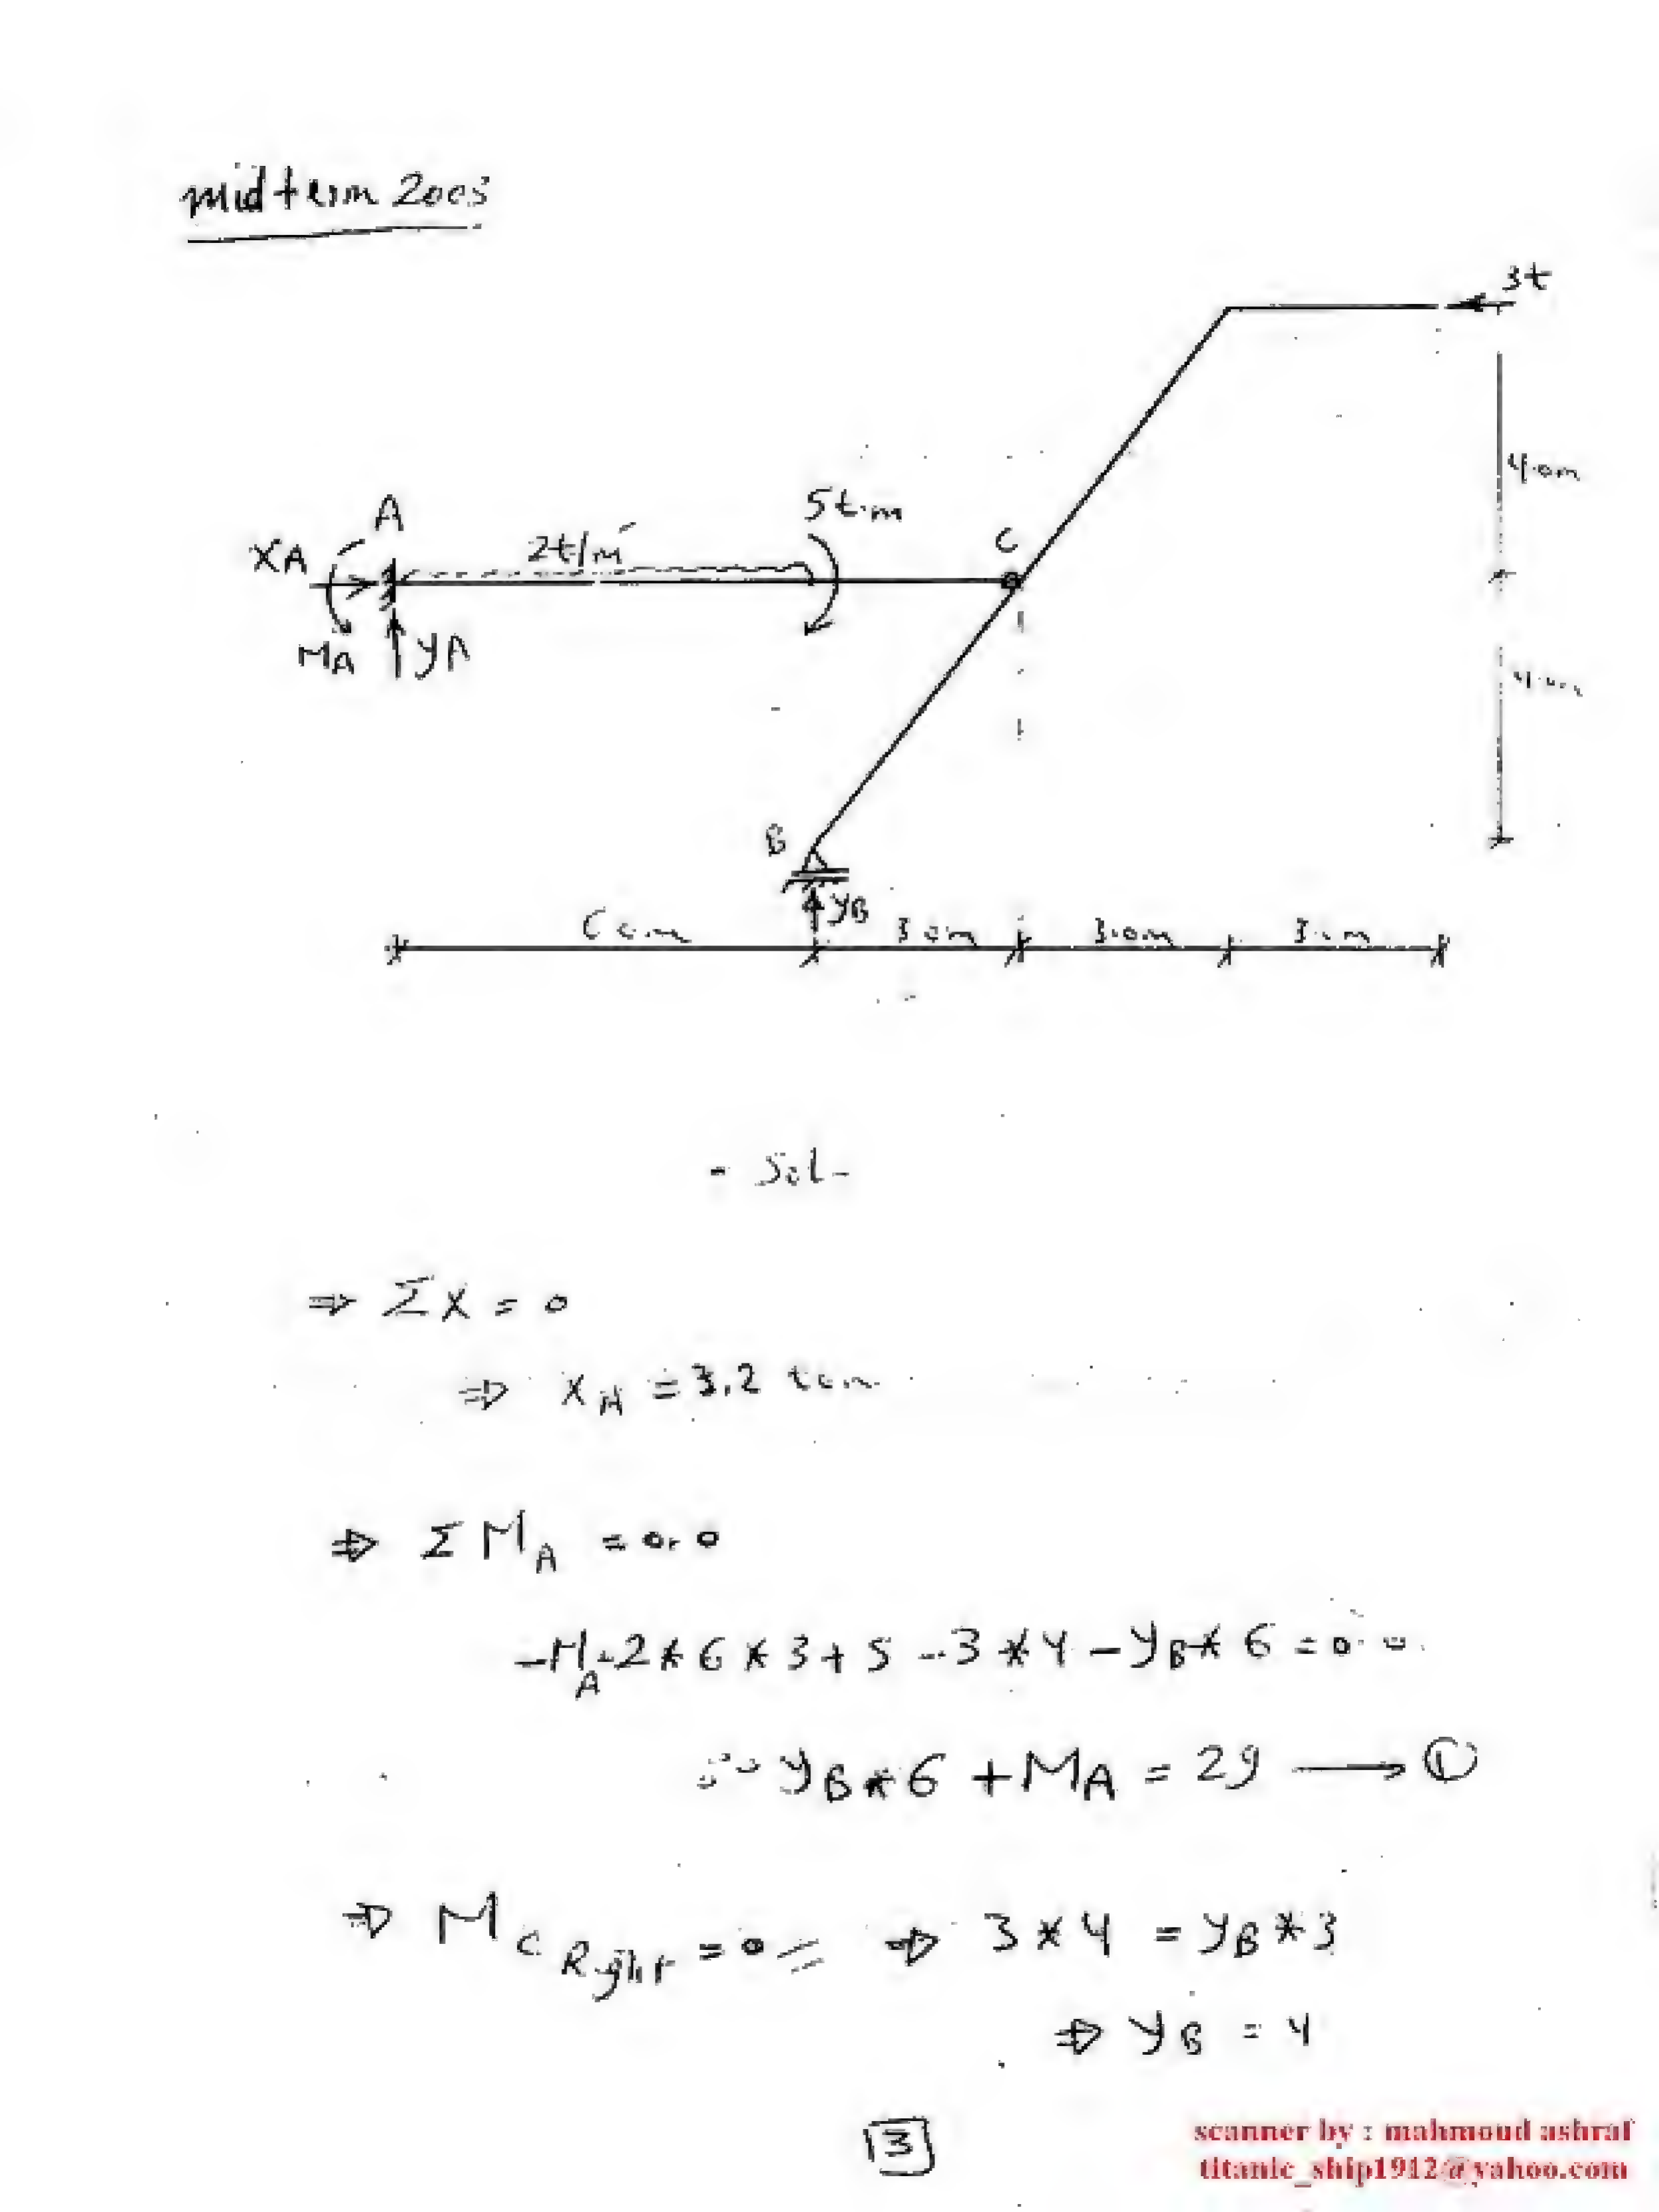 midterm 2003
3t
4.0m
A
5t.m
C
XA
2t/m'
MA
YA
4.0m
B
YB
6.0m
3.0m
3.0m
3.0m
- Sol -
⇒ ΣX = 0
⇒ XA = 3.2 ton
⇒ ΣMA = 0.0
-MA+2*6*3+5-3*4-YB*6=0.0
∴ YB*6+MA=29 → ①
⇒ MC Right = 0 ⇒ 3*4 = YB*3
⇒ YB = 4
13
scanner by : mahmoud ashraf
titanic_ship1912@yahoo.com